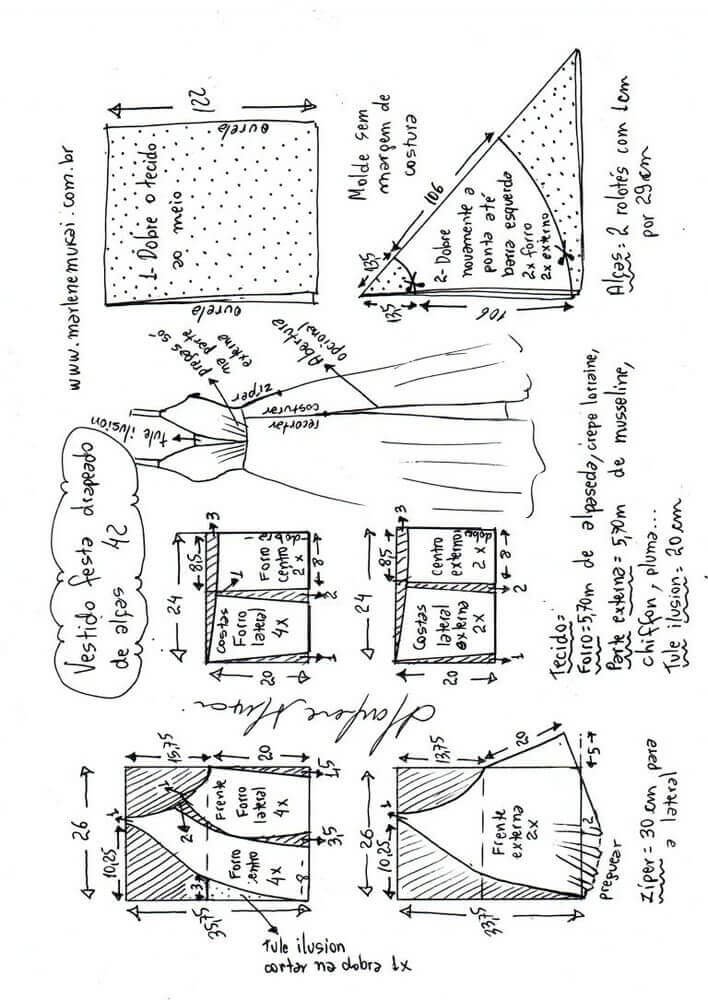 www.marlenemukai.com.br
Vestido festa drapeado
de alças 42
tule ilusion
pregas só
na parte
externa
zíper
costurar
recortar
Abertura
opcional
122
ourela
ourela
1- Dobre o tecido
ao meio
Molde sem
margem de
costura
13,5
106
13,5
106
2- Dobre
novamente a
ponta até
barra esquerda
2x forro
2x externo
Alças = 2 rolotés com 1cm
por 29cm
26
10,25
1
15,75
20
35,75
3
2
Frente
Forro
lateral
4x
Forro
centro
4x
8
3,5
1,5
Tule ilusion
cortar na dobra 1x
24
8,5
3
1
Costas
Forro
lateral
4x
Forro
centro
2x
dobra
20
8
2
1
24
8,5
3
Costas
lateral
externa
2x
Centro
externo
2x
dobra
20
8
2
1
Marlene Mukai
26
10,25
1
13,75
20
33,75
Frente
externa
2x
5
2
preguear
Zíper = 30 cm para
a lateral
Tecido=
Forro = 5,70m de alpaseda, crepe lorraine,
Parte externa = 5,70m de musseline,
chiffon, pluma...
Tule ilusion = 20 cm